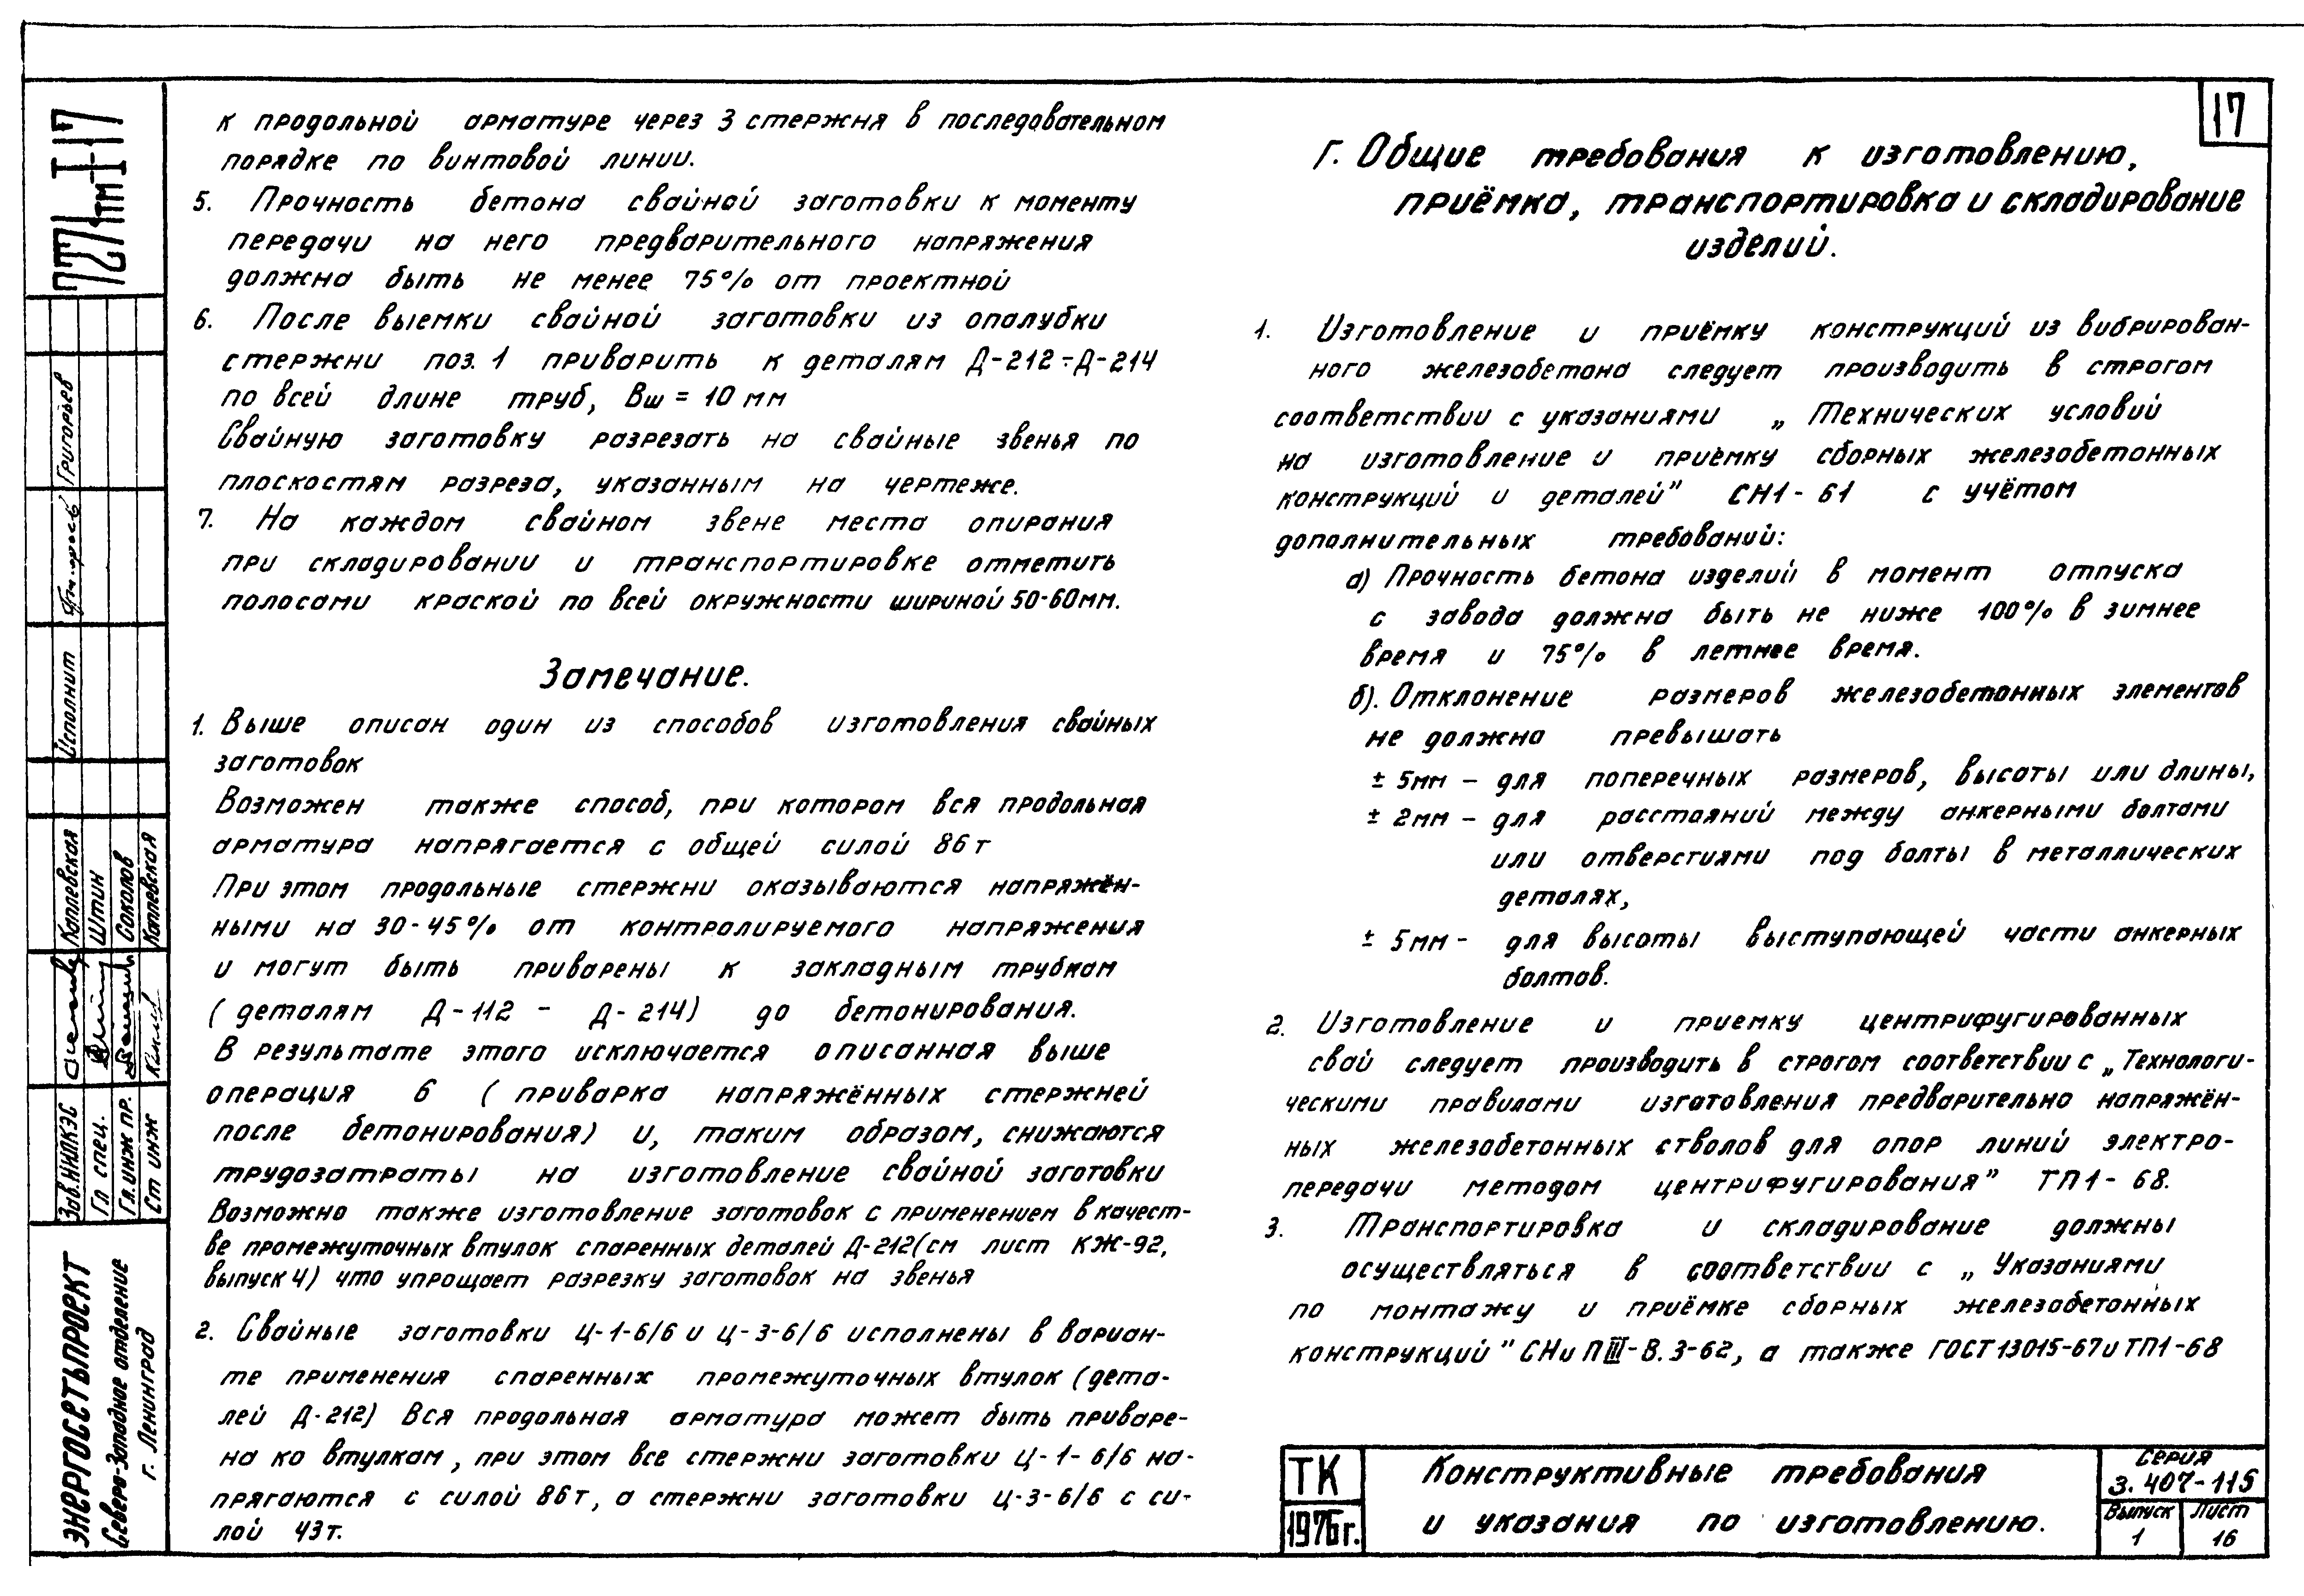 к продольной арматуре через 3 стержня в последовательном
порядке по винтовой линии.
5. Прочность бетона свайной заготовки к моменту
передачи на него предварительного напряжения
должна быть не менее 75% от проектной
6. После выемки свайной заготовки из опалубки
стержни поз. 1 приварить к деталям Д-212÷Д-214
по всей длине труб, Вш = 10 мм
Свайную заготовку разрезать на свайные звенья по
плоскостям разреза, указанным на чертеже.
7. На каждом свайном звене места опирания
при складировании и транспортировке отметить
полосами краской по всей окружности шириной 50-60мм.
Замечание.
1. Выше описан один из способов изготовления свайных
заготовок
Возможен также способ, при котором вся продольная
арматура напрягается с общей силой 86т
При этом продольные стержни оказываются напряжён-
ными на 30-45% от контролируемого напряжения
и могут быть приварены к закладным трубкам
(деталям Д-112 - Д-214) до бетонирования.
В результате этого исключается описанная выше
операция 6 (приварка напряжённых стержней
после бетонирования) и, таким образом, снижаются
трудозатраты на изготовление свайной заготовки
Возможно также изготовление заготовок с применением в качест-
ве промежуточных втулок спаренных деталей Д-212(см лист КЖ-92,
выпуск 4) что упрощает разрезку заготовок на звенья
2. Свайные заготовки Ц-1-6/6 и Ц-3-6/6 исполнены в вариан-
те применения спаренных промежуточных втулок (дета-
лей Д-212) Вся продольная арматура может быть приваре-
на ко втулкам, при этом все стержни заготовки Ц-1-6/6 на-
прягаются с силой 86т, а стержни заготовки Ц-3-6/6 с си-
лой 43т.
17
Г. Общие требования к изготовлению,
приёмка, транспортировка и складирование
изделий.
1. Изготовление и приёмку конструкций из вибрирован-
ного железобетона следует производить в строгом
соответствии с указаниями „Технических условий
на изготовление и приёмку сборных железобетонных
конструкций и деталей" СН1-61 с учётом
дополнительных требований:
а) Прочность бетона изделий в момент отпуска
с завода должна быть не ниже 100% в зимнее
время и 75% в летнее время.
б). Отклонение размеров железобетонных элементов
не должно превышать
± 5мм - для поперечных размеров, высоты или длины,
± 2мм - для расстояний между анкерными болтами
или отверстиями под болты в металлических
деталях,
± 5мм - для высоты выступающей части анкерных
болтов.
2. Изготовление и приемку центрифугированных
свай следует производить в строгом соответствии с „Технологи-
ческими правилами изготовления предварительно напряжён-
ных железобетонных стволов для опор линий электро-
передачи методом центрифугирования" ТП1-68.
3. Транспортировка и складирование должны
осуществляться в соответствии с „Указаниями
по монтажу и приёмке сборных железобетонных
конструкций" СНиП III-В.3-62, а также ГОСТ 13015-67 и ТП1-68
ТК
1976г.
Конструктивные требования
и указания по изготовлению.
Серия
3.407-115
Выпуск
1
Лист
16
7271тм-I-17
Григорьев
Исполнит
Каплевская
Штин
Соколов
Каплевская
Зав.НИЛКЭС
Гл спец.
Гл.инж пр.
Ст инж
ЭНЕРГОСЕТЬПРОЕКТ
Северо-Западное отделение
г. Ленинград